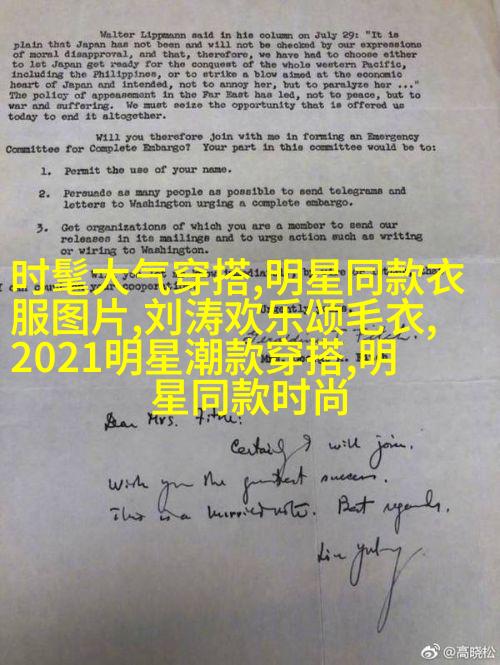 Walter Lippmann, and said in his column on July 29: "It is
plain that Japan has not been and will not be checked by our expressions
of moral disapproval, and that, therefore, we have had to choose either
to let Japan get ready for the conquest of the whole western Pacific,
including the Philippines, or to strike a blow aimed at the economic
heart of Japan and intended, not to annoy her, but to paralyze her ..."
The policy of appeasement in the Far East has led, not to peace, but to
war and suffering. We must seize the opportunity that is offered us
today to end it altogether.
Will you therefore join with me in forming an Emergency
Committee for Complete Embargo? Your part in this committee would be to:
1. Permit the use of your name.
2. Persuade as many people as possible to send telegrams and
letters to Washington urging a complete embargo.
3. Get organizations of which you are a member to send our
releases in its mailings and to urge action such as writing
or wiring to Washington.
时髦大气穿搭,明星同款衣
服图片,刘涛欢乐颂毛衣,
2021明星潮款穿搭,明
星同款时尚
Dear Mrs. Fitch:
Certainly I will join.
Wish you the greatest success.
This is a hurried note. Best regards.
Lin Yutang
@高晓松